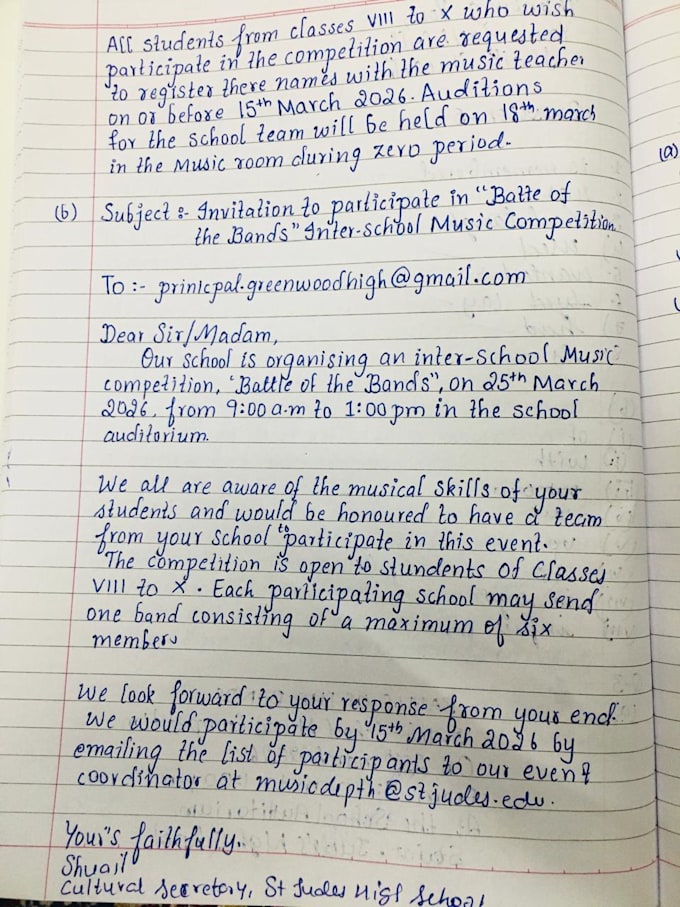 All students from classes VIII to X who wish
participate in the competition are requested
to register there names with the music teacher
on or before 15th March 2026. Auditions
for the school team will be held on 18th march
in the Music room during zero period.
(a)
(b) Subject :- Invitation to participate in "Batte of
the Bands" Inter-school Music Competition
To :- prinicpal.greenwoodhigh@gmail.com
Dear Sir/Madam,
Our school is organising an inter-school Music
competition, 'Battle of the Bands", on 25th March
2026, from 9:00 a.m to 1:00 pm in the school
auditorium.
We all are aware of the musical skills of your
students and would be honoured to have a team
from your school to participate in this event.
The competition is open to stundents of Classes
VIII to X. Each participating school may send
one band consisting of a maximum of six
members
We look forward to your response from your end.
We would participate by 15th March 2026 by
emailing the list of participants to our event
coordinator at musicdepth@stjudes.edu.
Your's faithfully.
Shuail
Cultural Secretary, St Judes High School